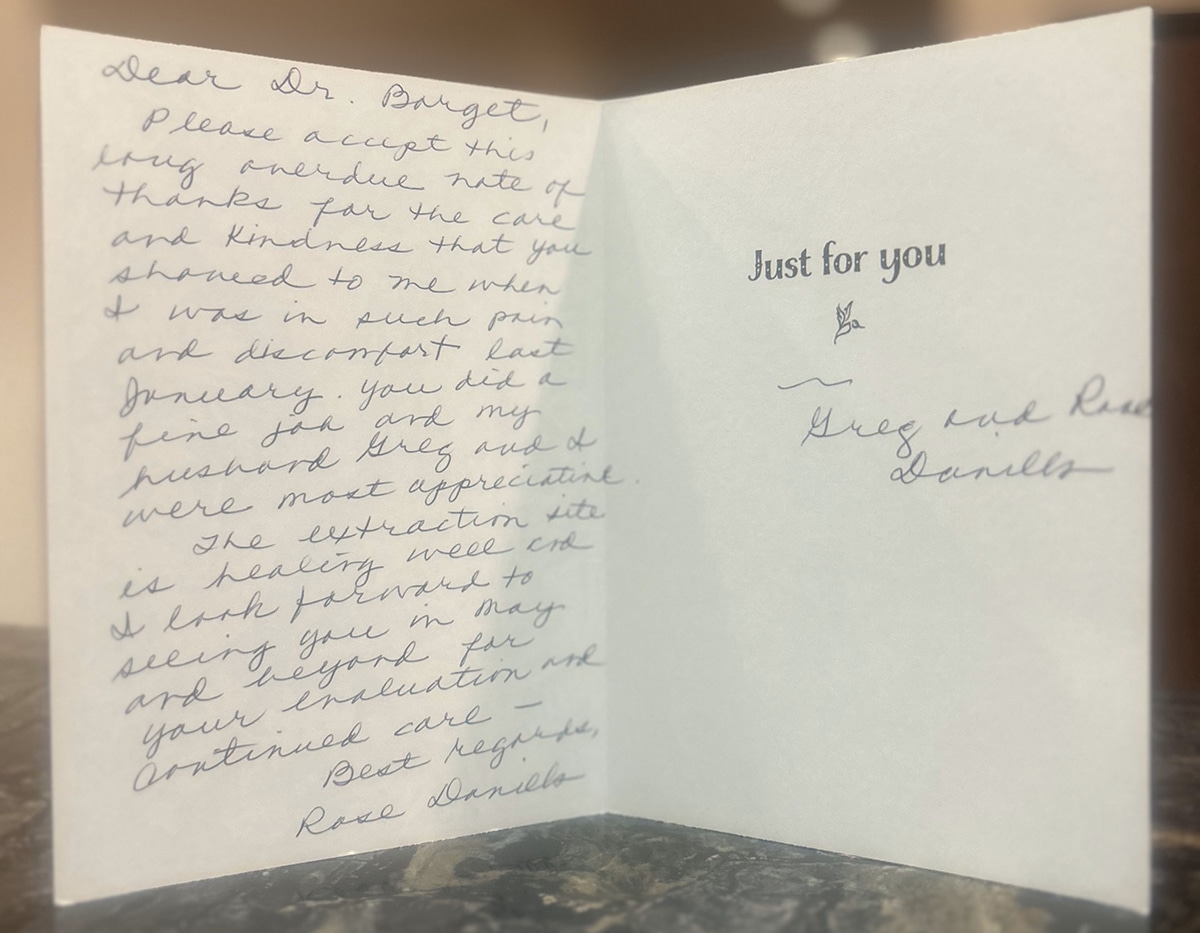 Dear Dr. Barget,
Please accept this
long overdue note of
thanks for the care
and kindness that you
showed to me when
I was in such pain
and discomfort last
January. You did a
fine job and my
husband Greg and I
were most appreciative.
The extraction site
is healing well and
I look forward to
seeing you in May
and beyond for
your evaluation and
continued care —
Best regards,
Rose Daniells
Just for you
Greg and Rose
Daniells